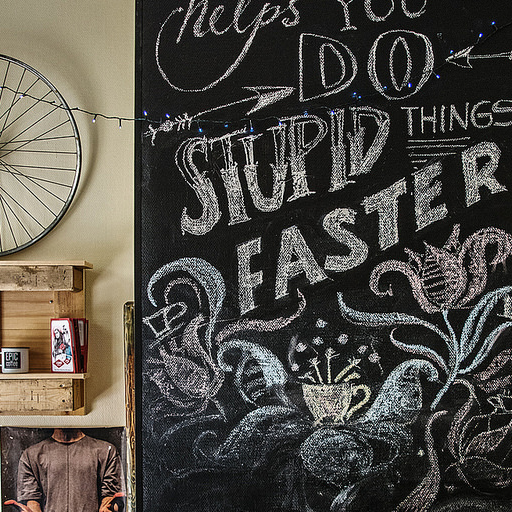 helps YOU
DO
STUPID THINGS
FASTER
EPIC